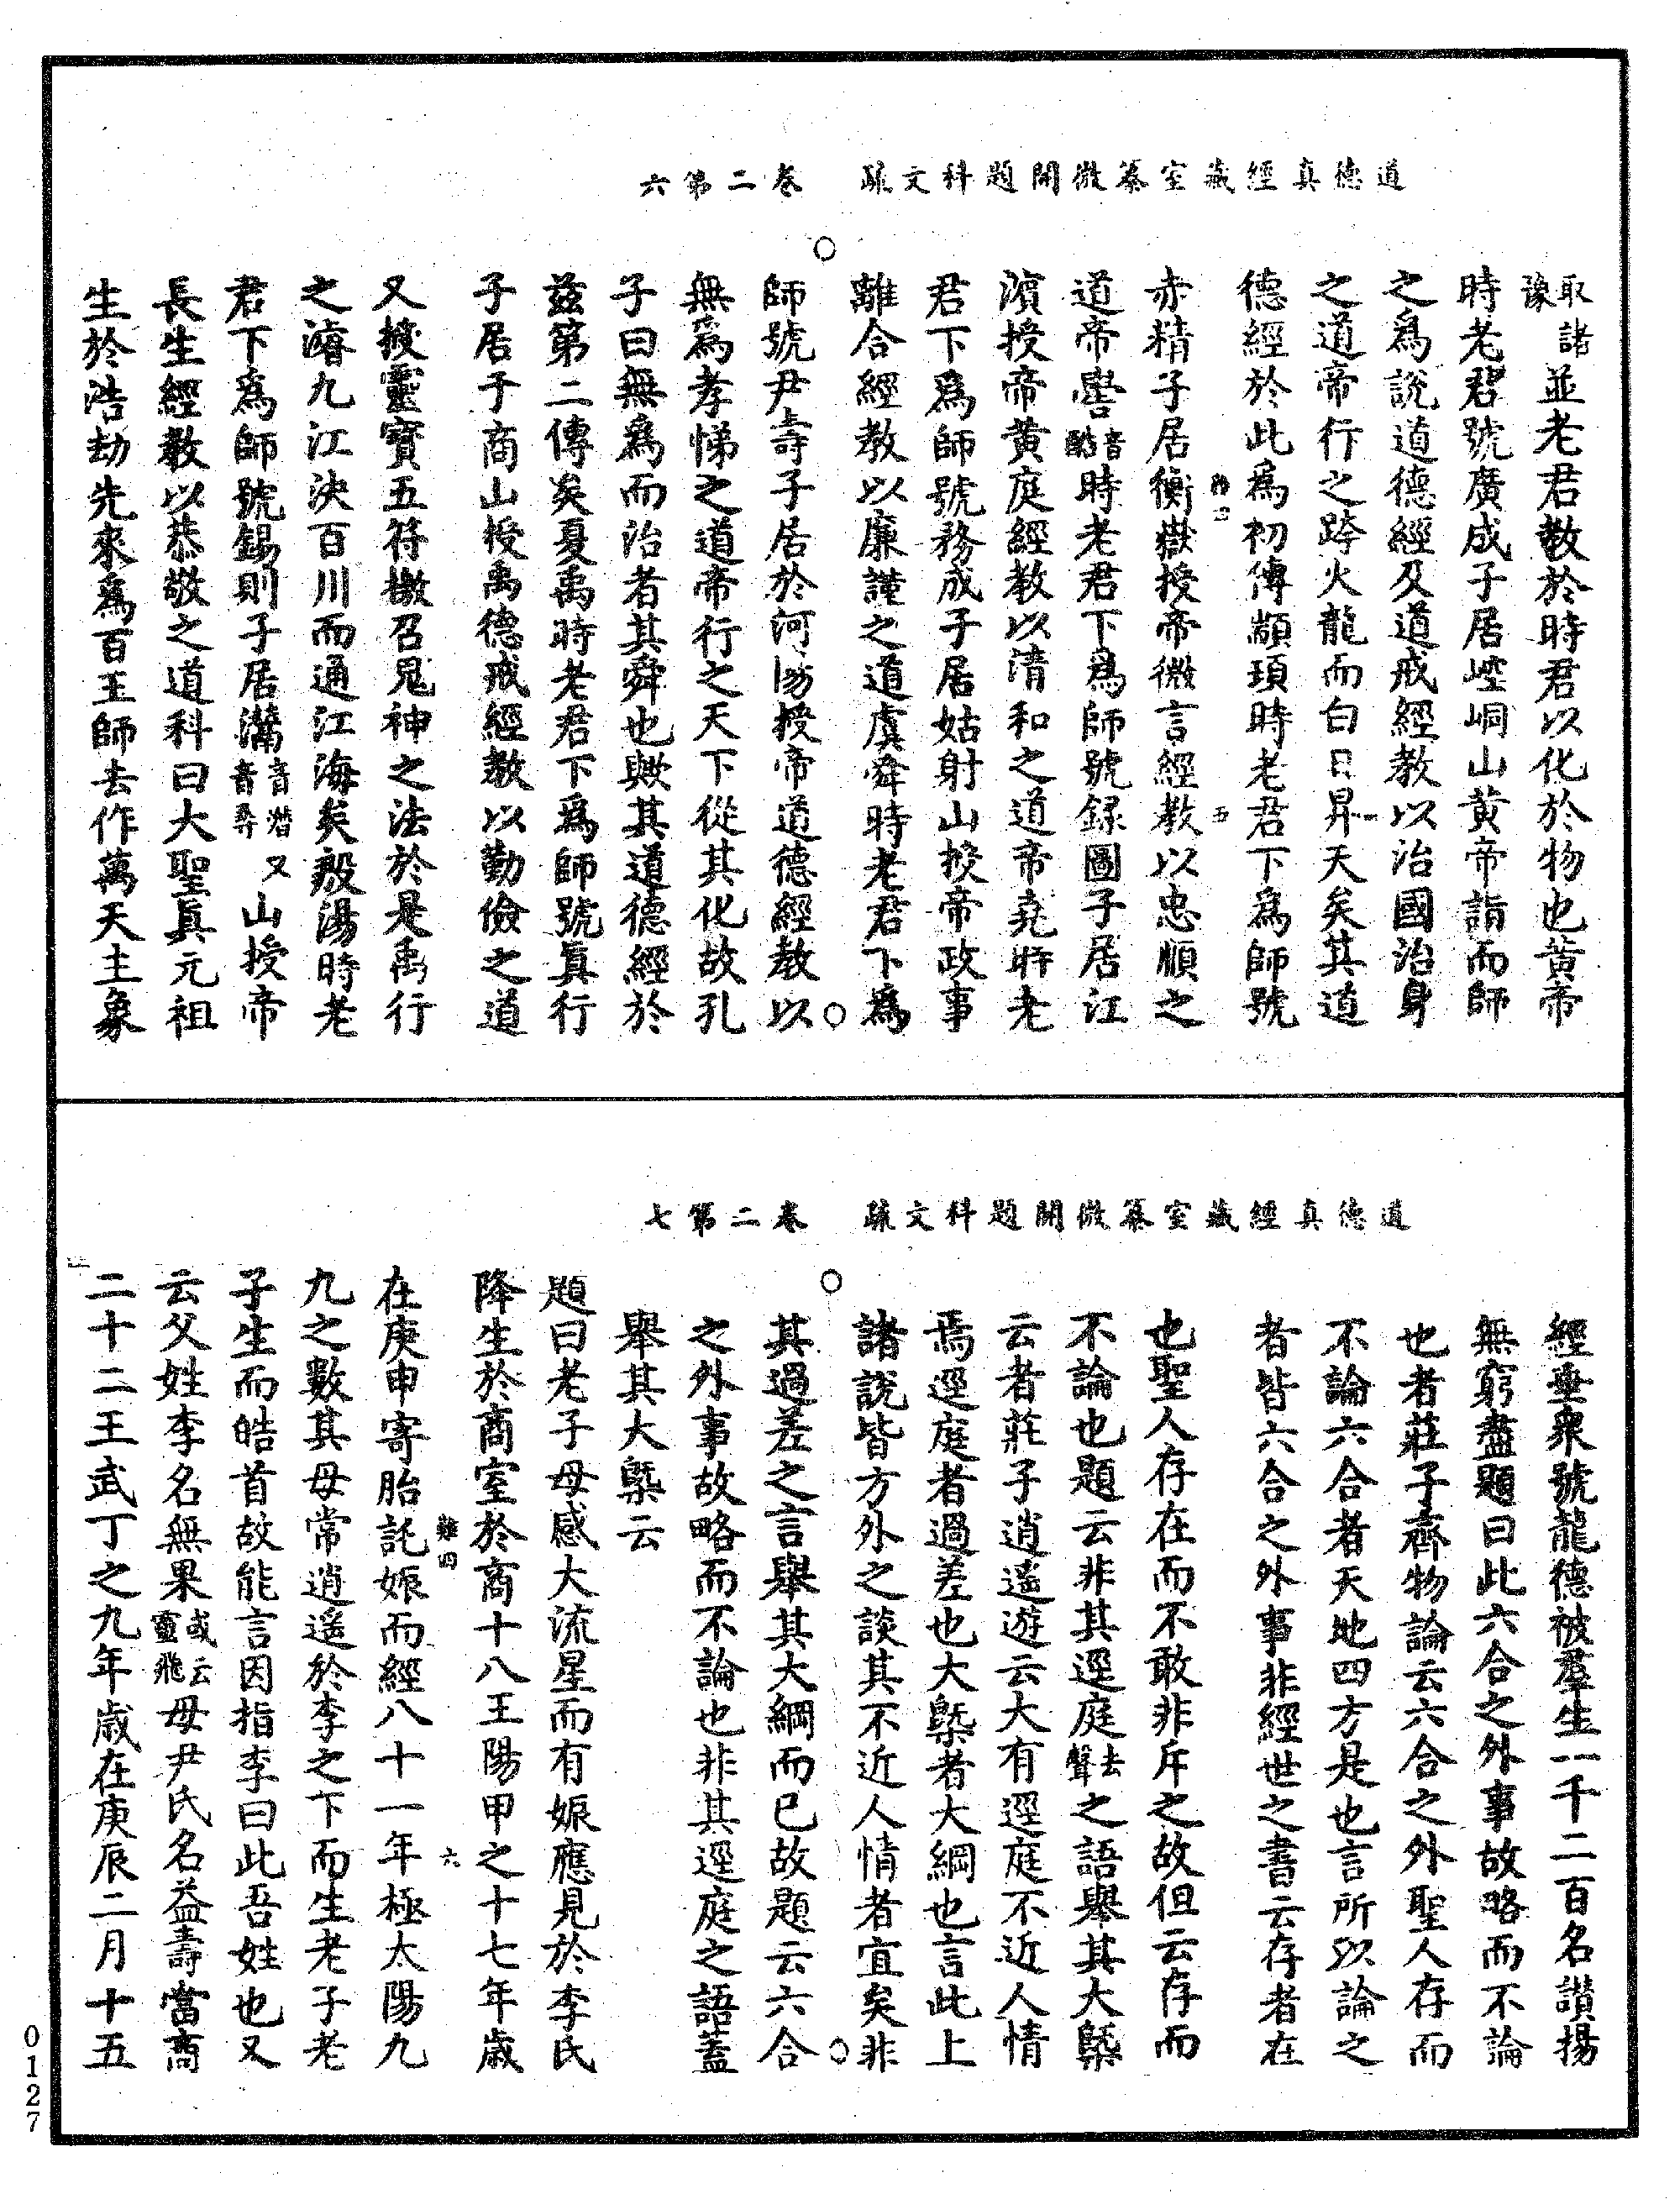 道德真經藏室纂微開題科文疏 卷二第六
取諸豫並老君教於時君以化於物也黃帝
時老君號廣成子居崆峒山黃帝詣而師
之爲說道德經及道戒經教以治國治身
之道帝行之跨火龍而白日昇天矣其道
德經於此爲初傳顓頊時老君下爲師號
赤精子居衡嶽授帝微言經教以忠順之
道帝嚳音酷時老君下爲師號録圖子居江
濱授帝黃庭經教以清和之道帝堯時老
君下爲師號務成子居姑射山授帝政事
離合經教以廉謹之道虞舜時老君下爲
師號尹壽子居於河陽授帝道德經教以
無爲孝悌之道帝行之天下從其化故孔
子曰無爲而治者其舜也歟其道德經於
茲第二傳矣夏禹時老君下爲師號眞行
子居于商山授禹德戒經教以勤儉之道
又授靈寶五符檄召鬼神之法於是禹行
之濬九江決百川而通江海矣殷湯時老
君下爲師號錫則子居灊音潛又音尋山授帝
長生經教以恭敬之道科曰大聖眞元祖
生於浩劫先來爲百王師去作萬天主象
道德真經藏室纂微開題科文疏 卷二第七
經垂衆號龍德被羣生一千二百名讃揚
無窮盡題曰此六合之外事故略而不論
也者莊子齊物論云六合之外聖人存而
不論六合者天地四方是也言所以論之
者皆六合之外事非經世之書云存者在
也聖人存在而不敢非斥之故但云存而
不論也題云非其逕庭去聲之語舉其大槩
云者莊子逍遙遊云大有逕庭不近人情
焉逕庭者過差也大槩者大綱也言此上
諸說皆方外之談其不近人情者宜矣非
其過差之言舉其大綱而已故題云六合
之外事故略而不論也非其逕庭之語蓋
舉其大槩云
題曰老子母感大流星而有娠應見於李氏
降生於商室於商十八王陽甲之十七年歲
在庚申寄胎託娠而經八十一年極太陽九
九之數其母常逍遥於李之下而生老子老
子生而皓首故能言因指李曰此吾姓也又
云父姓李名無果或云靈飛母尹氏名益壽當商
二十二王武丁之九年歲在庚辰二月十五
0127